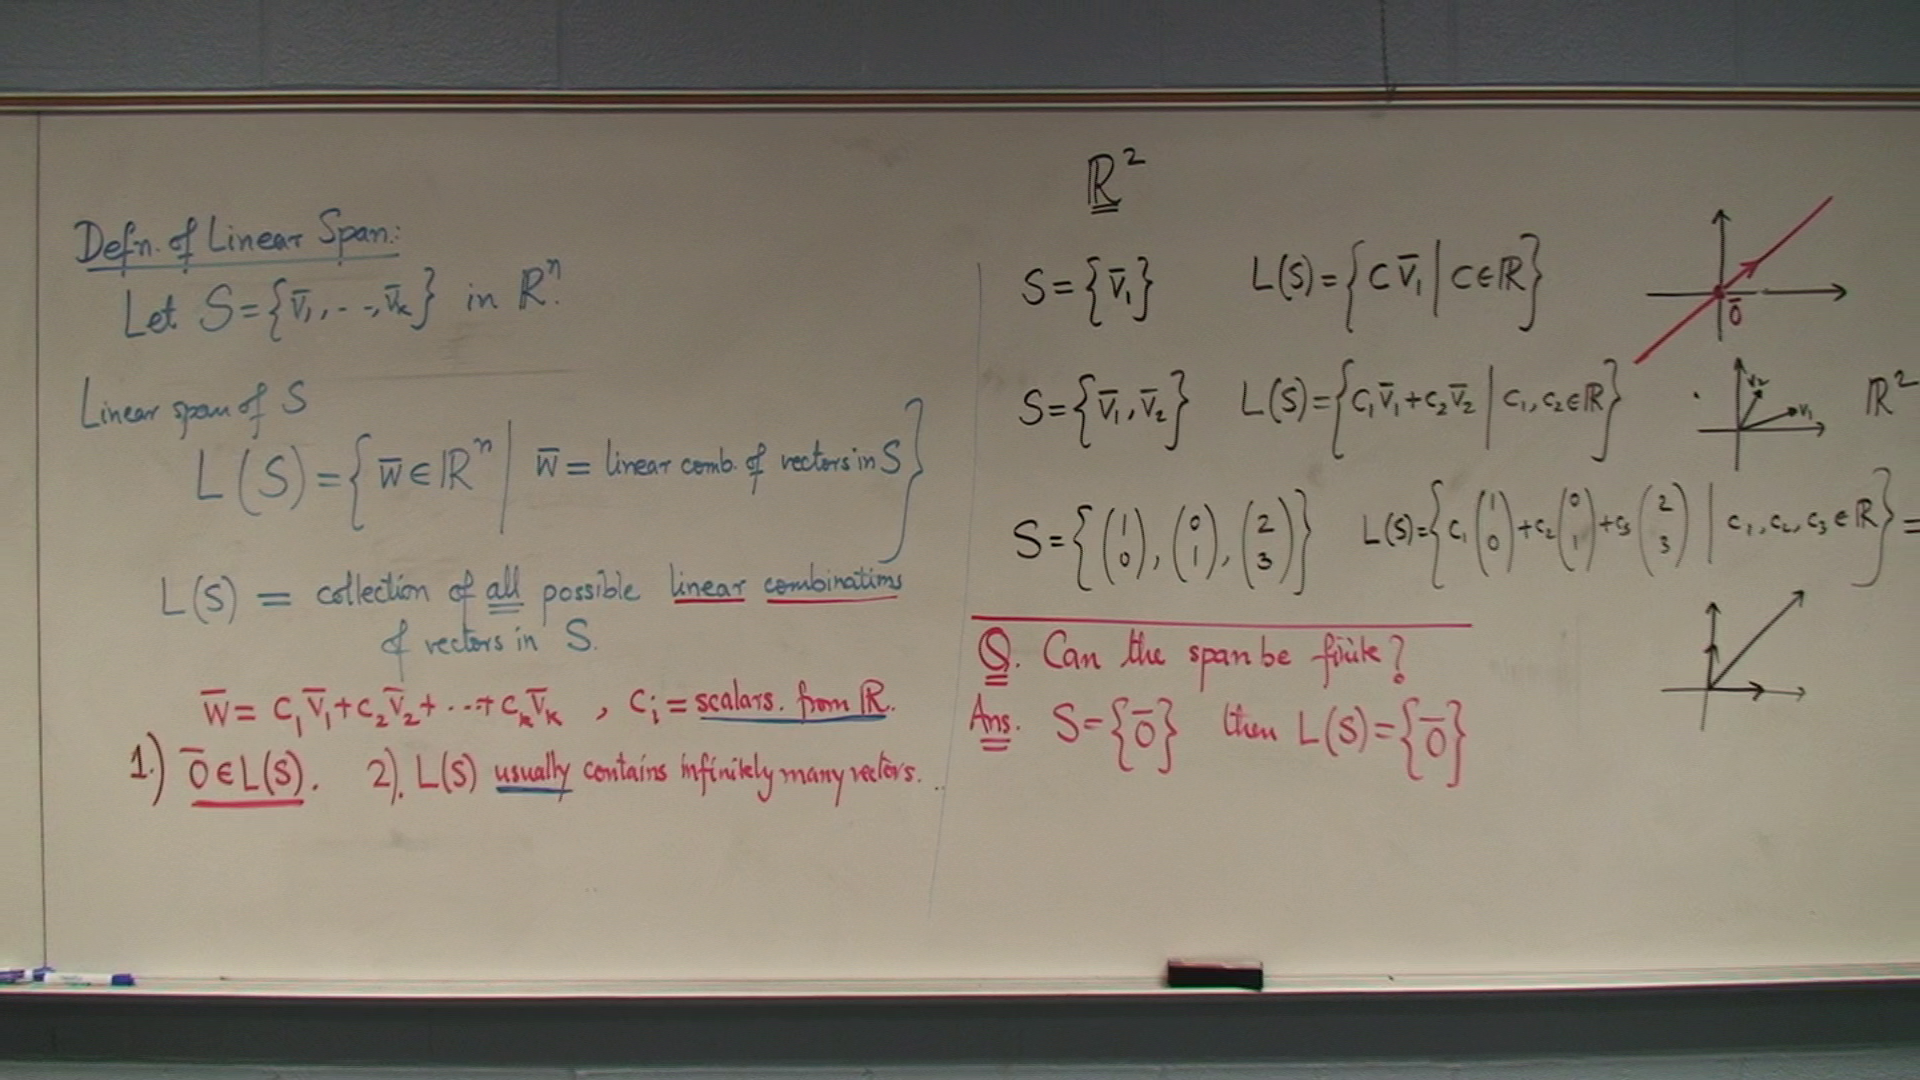 Defn. of Linear Span:
Let S = {v̄₁, ..., v̄ₖ} in ℝⁿ.
Linear span of S
L(S) = { w̄ ∈ ℝⁿ | w̄ = linear comb. of vectors in S }
L(S) = collection of all possible linear combinations
of vectors in S.
w̄ = c₁v̄₁ + c₂v̄₂ + ... + cₖv̄ₖ , cᵢ = scalars. from ℝ.
1.) 0̄ ∈ L(S). 2). L(S) usually contains infinitely many vectors.
ℝ²
S = {v̄₁} L(S) = { c v̄₁ | c ∈ ℝ }
0̄
S = {v̄₁, v̄₂} L(S) = { c₁v̄₁ + c₂v̄₂ | c₁, c₂ ∈ ℝ }
v₂ v₁ ℝ²
S = { (1 0), (0 1), (2 3) } L(S) = { c₁ (1 0) + c₂ (0 1) + c₃ (2 3) | c₁, c₂, c₃ ∈ ℝ } =
Q. Can the span be finite?
Ans. S = {0̄} then L(S) = {0̄}